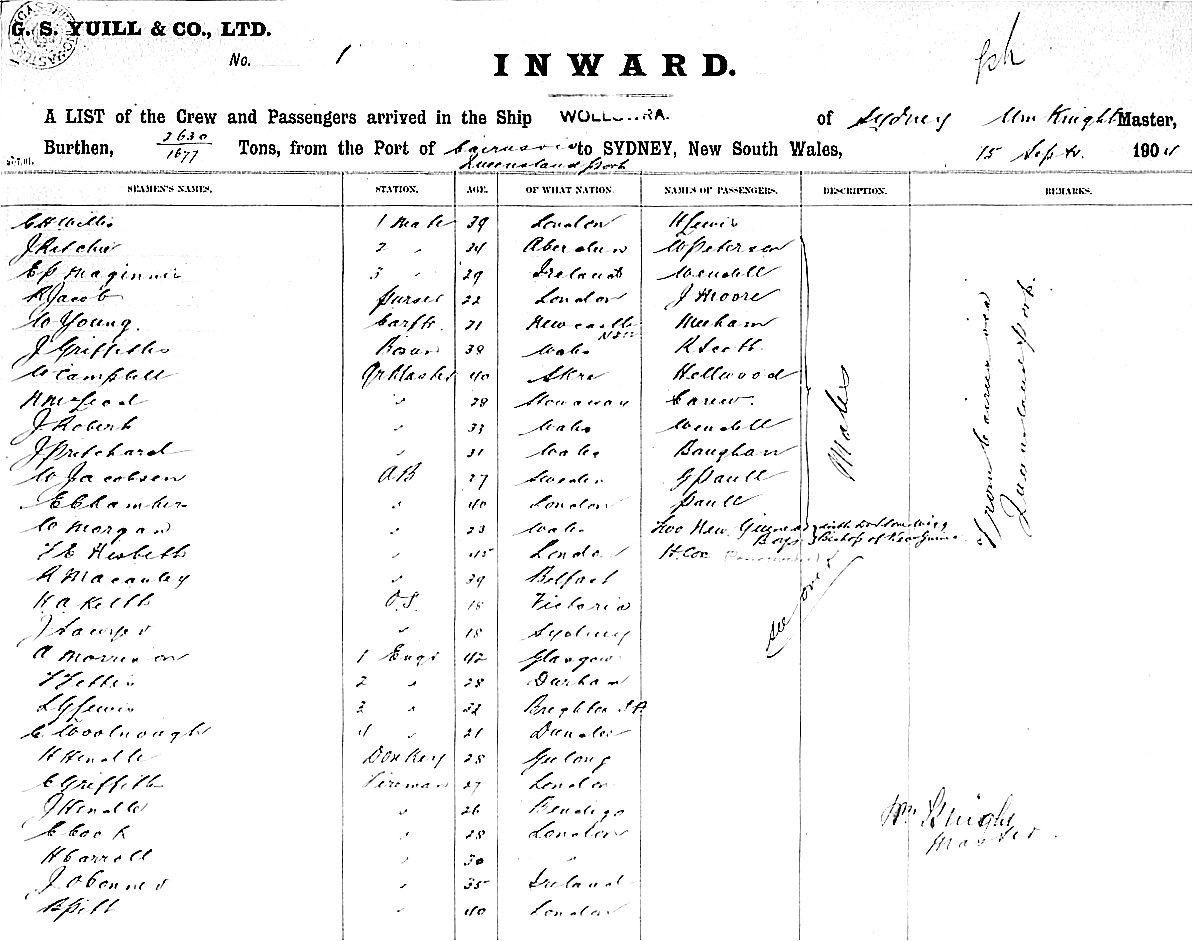 G. S. YUILL & CO., LTD.
No. 1
INWARD.
A LIST of the Crew and Passengers arrived in the Ship WOLLOWRA. of Sydney Wm Knight Master,
Burthen, 2630/1677 Tons, from the Port of Cairns via to SYDNEY, New South Wales, 15 Septr. 1904
Queensland ports
SEAMEN'S NAMES. STATION. AGE. OF WHAT NATION. NAMES OF PASSENGERS. DESCRIPTION. REMARKS.
C H Willis 1 Mate 39 London H Lewis
J Ritchie 2 " 24 Aberdeen W Petersen
E P Maginnis 3 " 29 Ireland Wendell
R Jacob Purser 22 London J Moore
W Young. Carptr. 21 Newcastle NSW Meeham
J Griffiths Bosun 38 Wales R Scott
W Campbell Qr Master 40 Hellwood
McLeod " 28 Stornaway Carew.
J Robert " 33 Wales Wendell
J Pritchard " 31 Wales Baughan
W Jacobsen AB 27 Sweden G Paull
E Chambers " 40 London Paull
W Morgan " 23 Wales Two New Guinea Boys with
Bishop of New Guinea
T E Hesbeth " 45 London H. Cox
R Macauley " 39 Belfast
Keith O.S. 18 Victoria
J Sawyer " 18 Sydney
A Morrison 1 Engr 42 Glasgow
T Fettis 2 " 28 Durham
L G Lewis 3 " 32 Brighton S A
C Woolnough 4 " 21 Dundee
H Hendle Donkey 28 Geelong
C Griffith Fireman 27 London
J Hendle " 26 Bendigo
C Cook " 28 London
H Carroll " 30 "
J O'Conner " 35 Ireland
Pitt " 40 London
Males
see over
From Cairns via
Queensland ports.
Wm Knight
Master